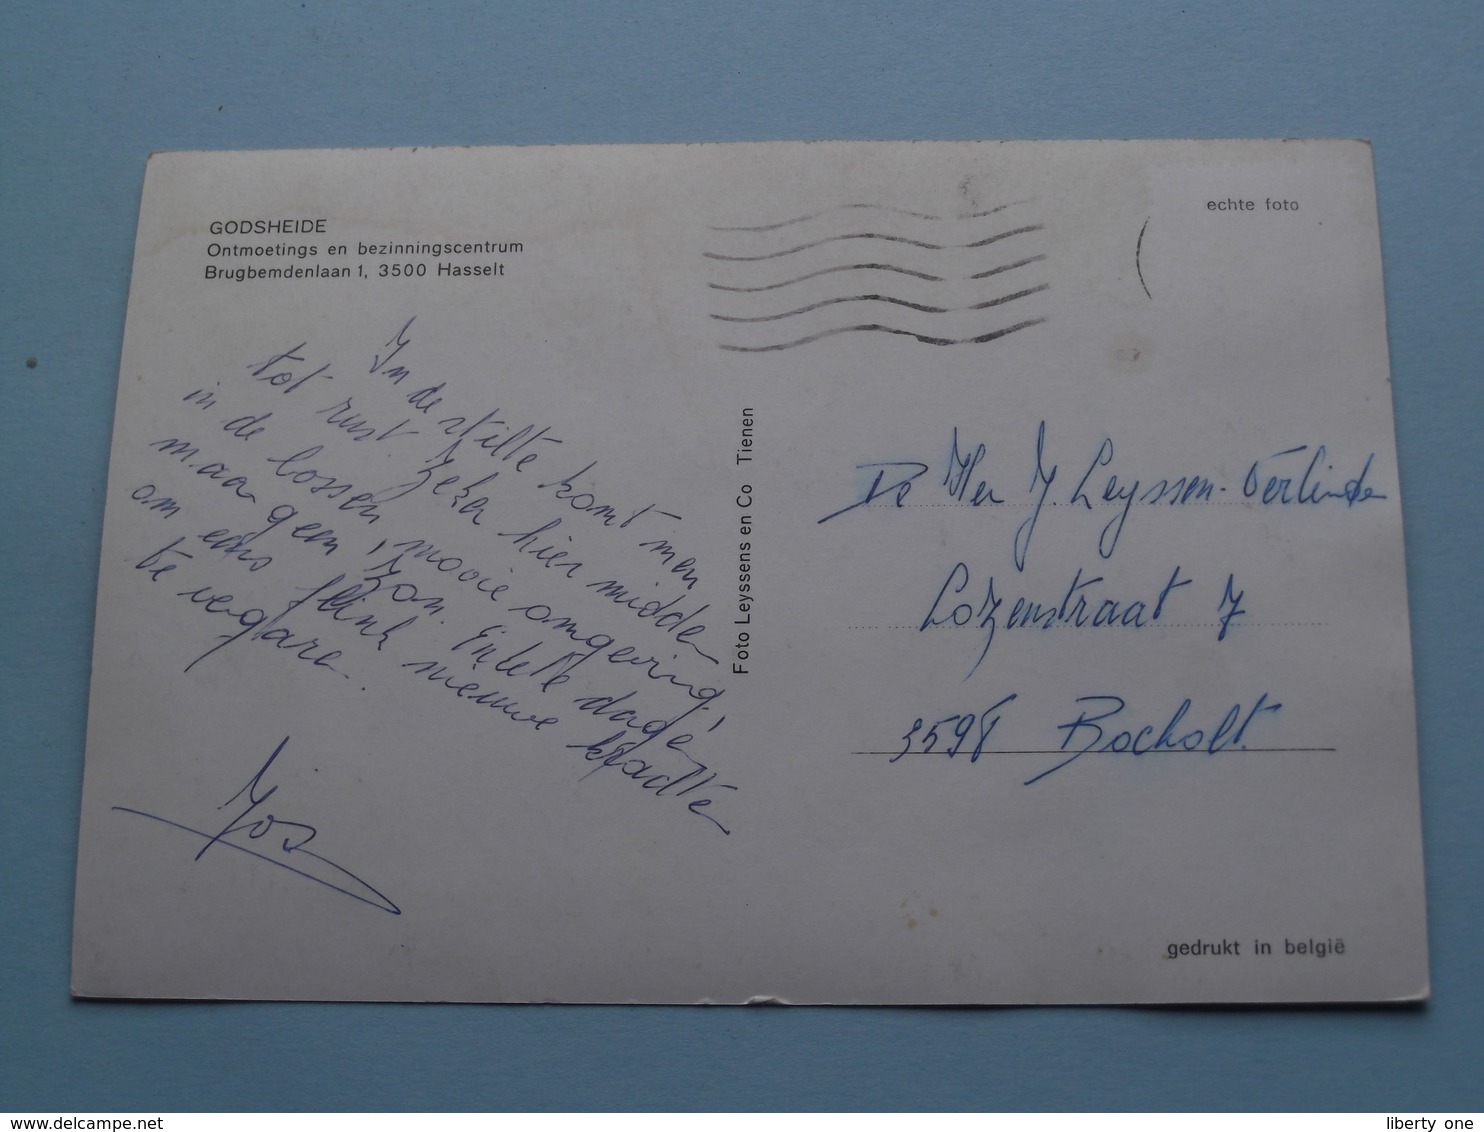 GODSHEIDE
Ontmoetings en bezinningscentrum
Brugbemdenlaan 1, 3500 Hasselt
echte foto
In de stilte komt men
tot rust. Zeker hier midden
in de bossen, mooie omgeving,
maar geen zon. Enkele dagen
om eens flink nieuwe krachten
te vergaren.
Jos
Foto Leyssens en Co Tienen
De Heer J. Leyssen-Verlinden
Lozenstraat 7
3598 Bocholt.
gedrukt in belgië
delcampe.net
liberty one